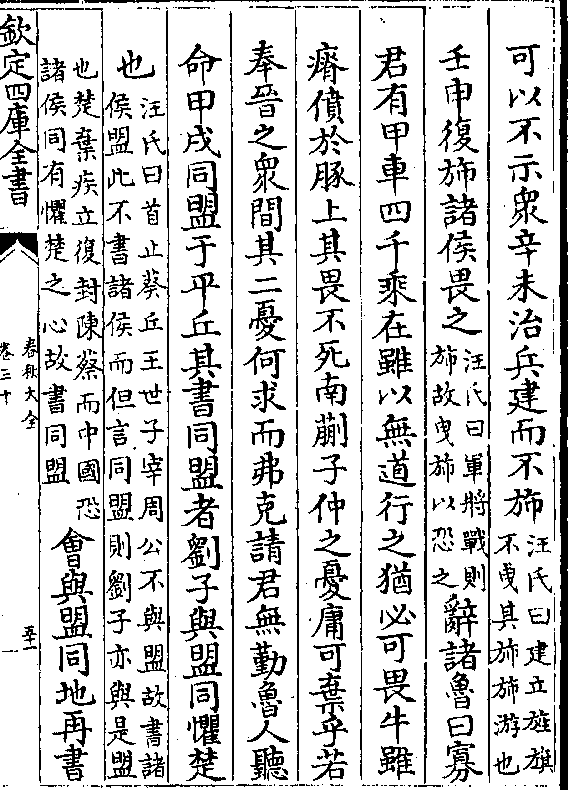 可以不示衆辛未治兵建而不斾汪氏曰建立旌旗不曵其斾斾游也
壬申復斾諸侯畏之汪氏曰軍將戰則斾故曵斾以恐之辭諸魯曰寡
君有甲車四千乘在雖以無道行之猶必可畏牛雖
瘠僨於豚上其畏不死南蒯子仲之憂庸可棄乎若
奉晉之衆間其二憂何求而弗克請君無勤魯人聽
命甲戌同盟于平丘其書同盟者劉子與盟同懼楚
也汪氏曰首止葵丘王世子宰周公不與盟故書諸侯盟此不書諸侯而但言同盟則劉子亦與是盟
也楚棄疾立復封陳蔡而中國恐諸侯同有懼楚之心故書同盟會與盟同地再書
欽定四庫全書
春秋大全
卷三十